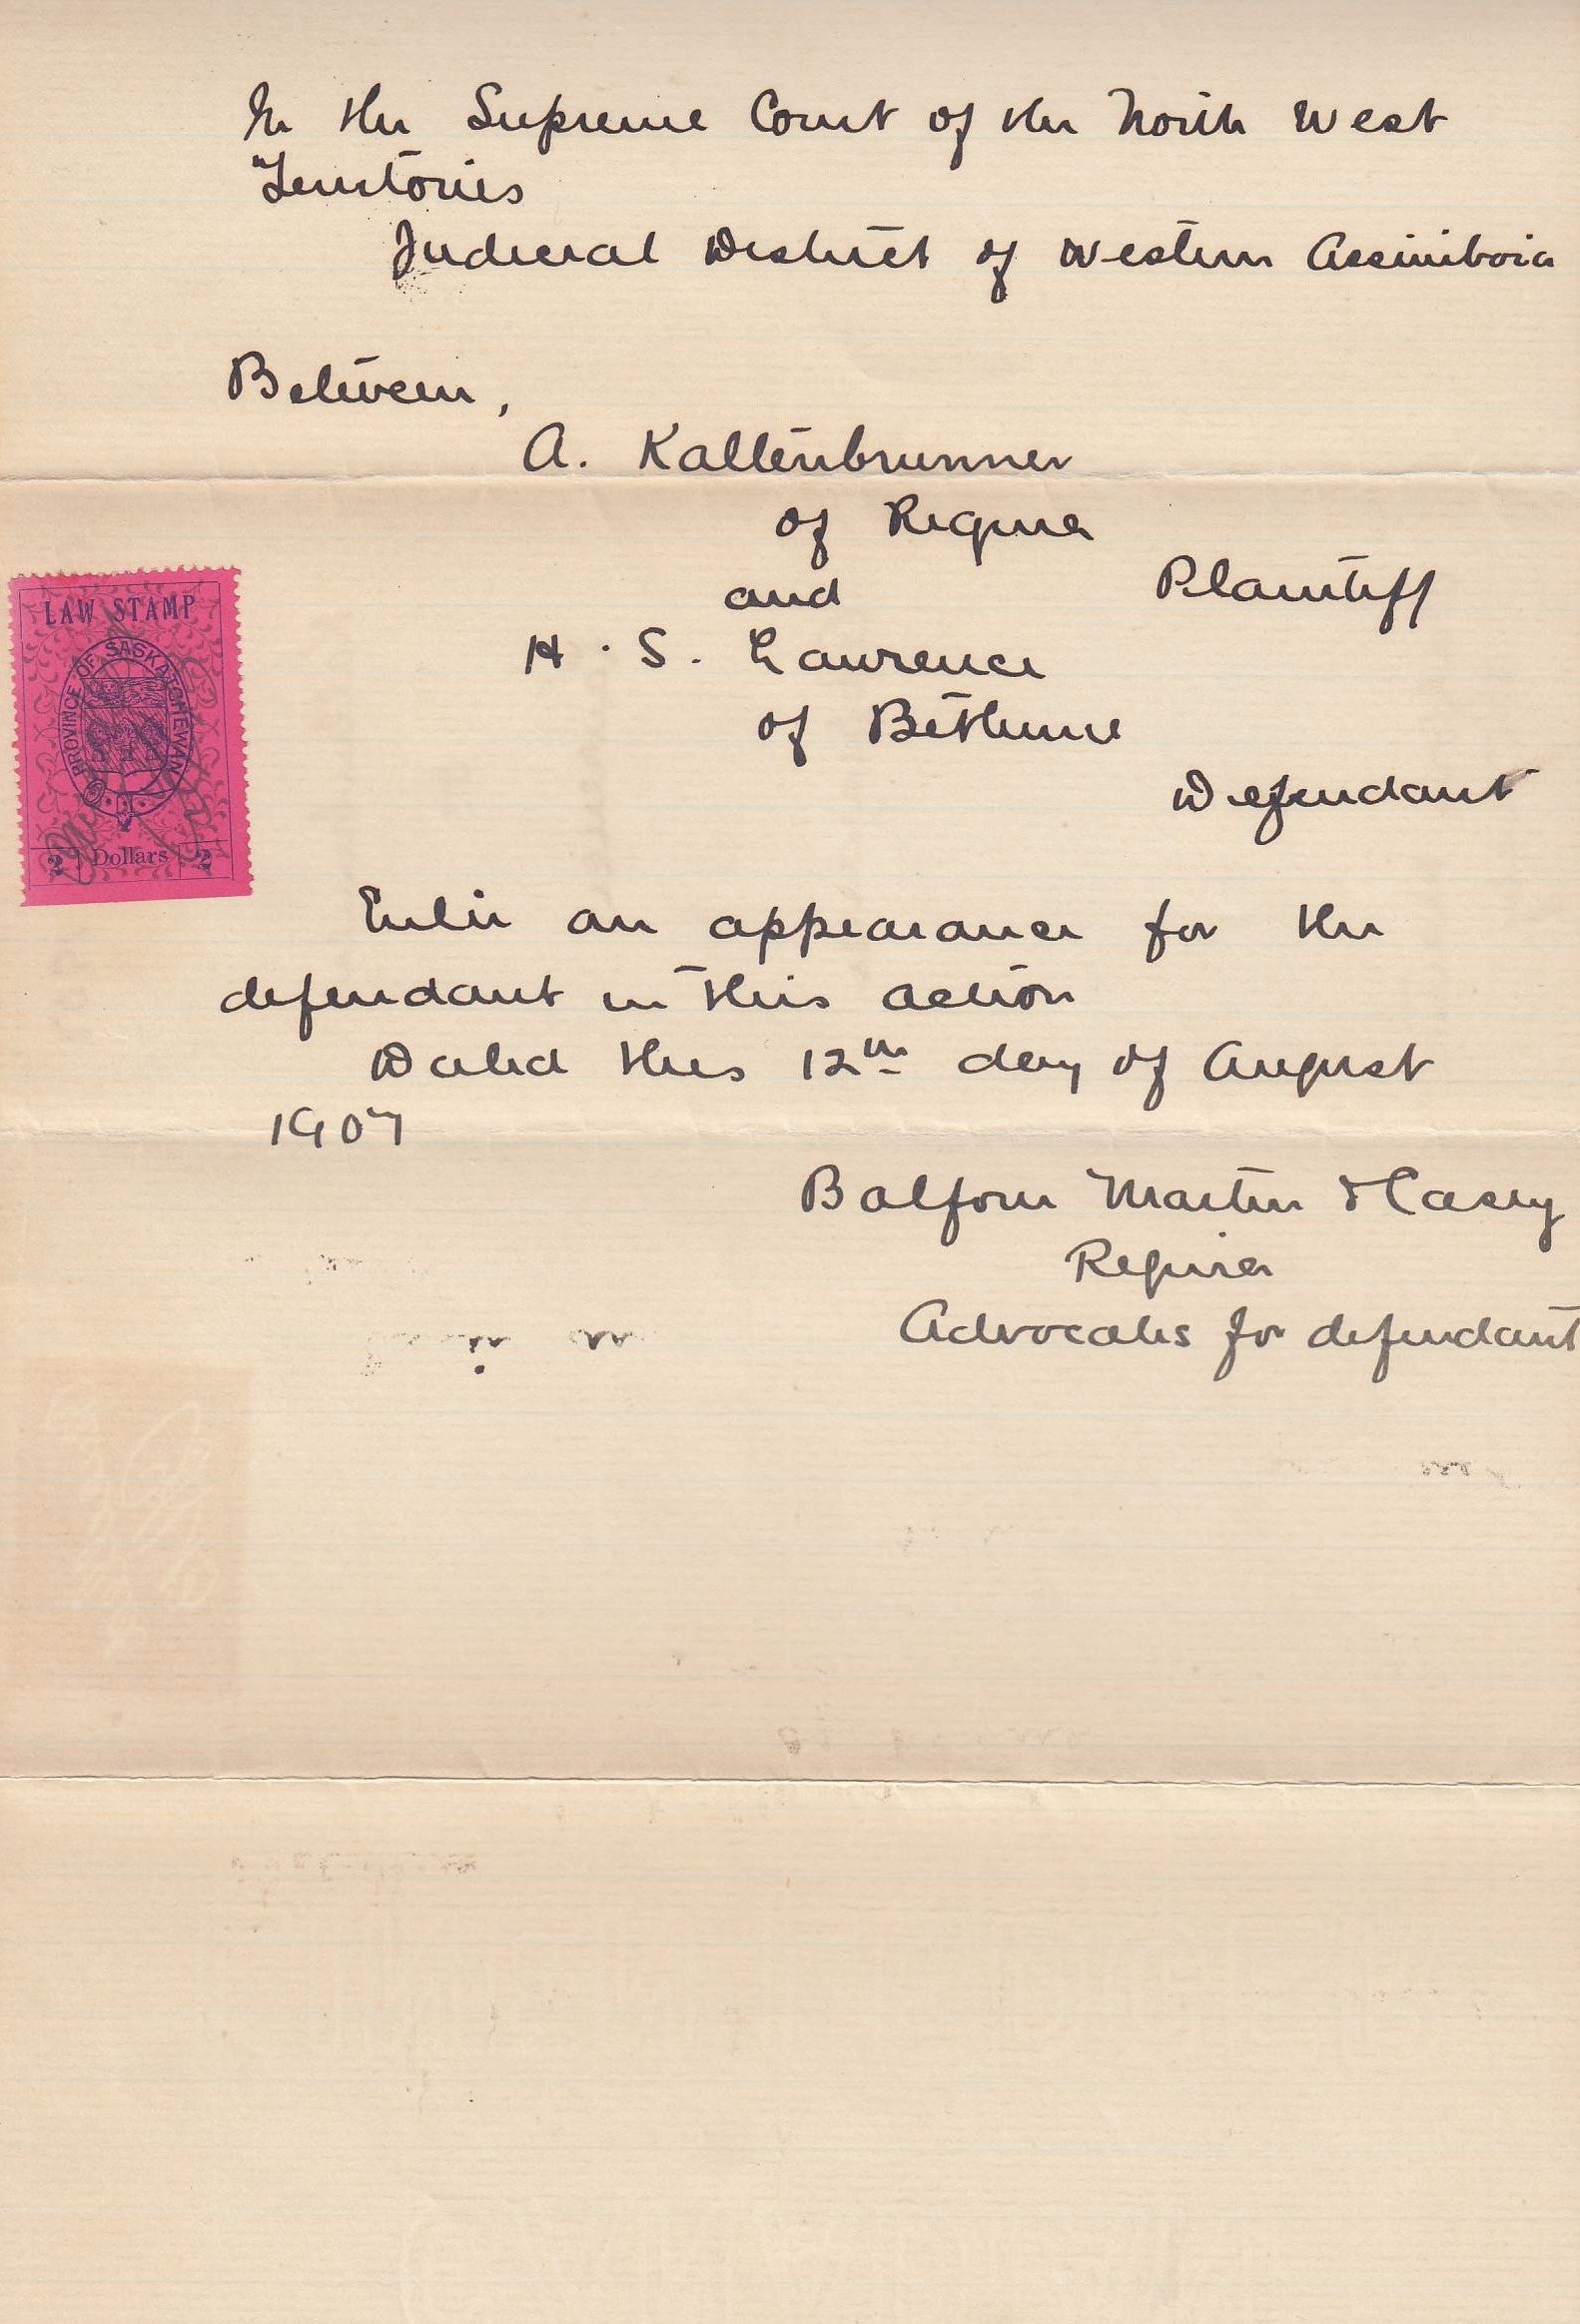 In the Supreme Court of the North West
Territories
Judicial District of Western Assiniboia
Between,
A. Kaltenbrunner
of Regina
and Plaintiff
H. S. Lawrence
of Bethune
Defendant
LAW STAMP
PROVINCE OF SASKATCHEWAN
2 Dollars 2
Enter an appearance for the
defendant in this action
Dated this 12th day of August
1907
Balfour Martin & Casey
Regina
Advocates for defendant